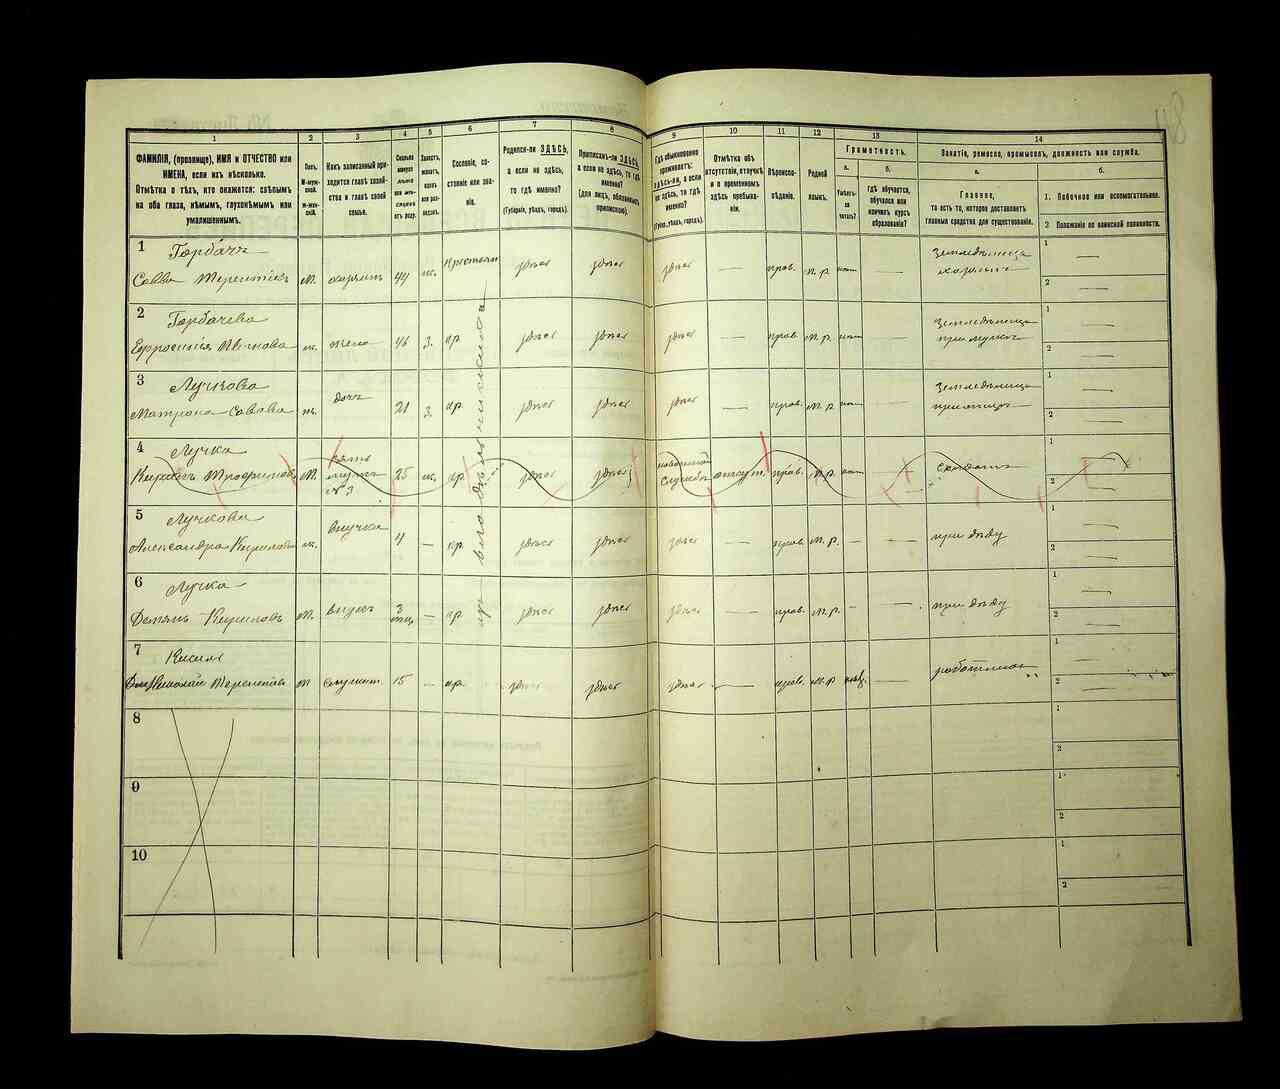 1
2
3
4
5
6
7
8
9
10
11
12
13
14
ФАМИЛІЯ, (прозвище), ИМЯ и ОТЧЕСТВО или
ИМЕНА, если ихъ нѣсколько.
Отмѣтка о тѣхъ, кто окажется: слѣпымъ
на оба глаза, нѣмымъ, глухонѣмымъ или
умалишеннымъ.
Полъ.
М-муж-
ской.
Ж-жен-
скій.
Какъ записанный при-
ходится главѣ хозяй-
ства и главѣ своей
семьи.
Сколько
минуло
лѣтъ
или
мѣсяцевъ
отъ роду.
Холостъ,
женатъ,
вдовъ
или раз-
веденъ.
Сословіе, со-
стояніе или зва-
ніе.
Родился-ли ЗДѢСЬ,
а если не здѣсь,
то гдѣ именно?
(Губернія, уѣздъ, городъ).
Приписанъ-ли ЗДѢСЬ,
а если не здѣсь, то гдѣ
именно?
(для лицъ, обязанныхъ
припискою).
Гдѣ обыкновенно
проживаетъ:
здѣсь-ли, а если
не здѣсь, то гдѣ
именно?
(Губер., уѣздъ, городъ).
Отмѣтка объ
отсутствіи, отлучкѣ
и о временномъ
здѣсь пребыва-
ніи.
Вѣроиспо-
вѣданіе.
Родной
языкъ.
Грамотность.
а.
Умѣетъ-
ли
читать?
б.
Гдѣ обучается,
обучался или
кончилъ курсъ
образованія?
Занятіе, ремесло, промыселъ, должность или служба.
а.
Главное,
то есть то, которое доставляетъ
главныя средства для существованія.
б.
1. Побочное или вспомогательное.
2 Положеніе по воинской повинности.
1
Горбачъ
Савва Терентіевъ М. хозяинъ 44 ж. крестьян здѣсь здѣсь здѣсь — прав. м.р. нет —
Земледѣлецъ
хозяинъ
1 —
2 —
2
Горбачева
Ефросинія ж. жена 46 З. кр. здѣсь здѣсь здѣсь — прав. м.р. нет —
Земледѣлица
при мужѣ
1 —
2 —
3
Лучкова
Матрона Савова ж. дочь 21 З. кр. здѣсь здѣсь здѣсь — прав. м.р. нет —
Земледѣлица
при отцѣ
1 —
2 —
4
Лучка
Кирилъ Трофимовъ М. зять
мужъ
№3 25 ж. кр. здѣсь здѣсь
службѣ отсут. прав. м.р. нет —
солдатъ
1 —
2 —
5
Лучкова
Александра Кирилова ж. внучка 4 — кр. здѣсь здѣсь здѣсь — прав. м.р. — — при дѣду
1 —
2 —
6
Лучка
Демянъ Кириловъ М. внукъ 3
мц. — кр. здѣсь здѣсь здѣсь — прав. м.р. — — при дѣду
1 —
2 —
7
Кисиль
Николай Терентіев М 15 — кр. здѣсь здѣсь здѣсь — прав. м.р. —
работникъ
1 —
2 —
8
1
2
9
1
2
10
1
2